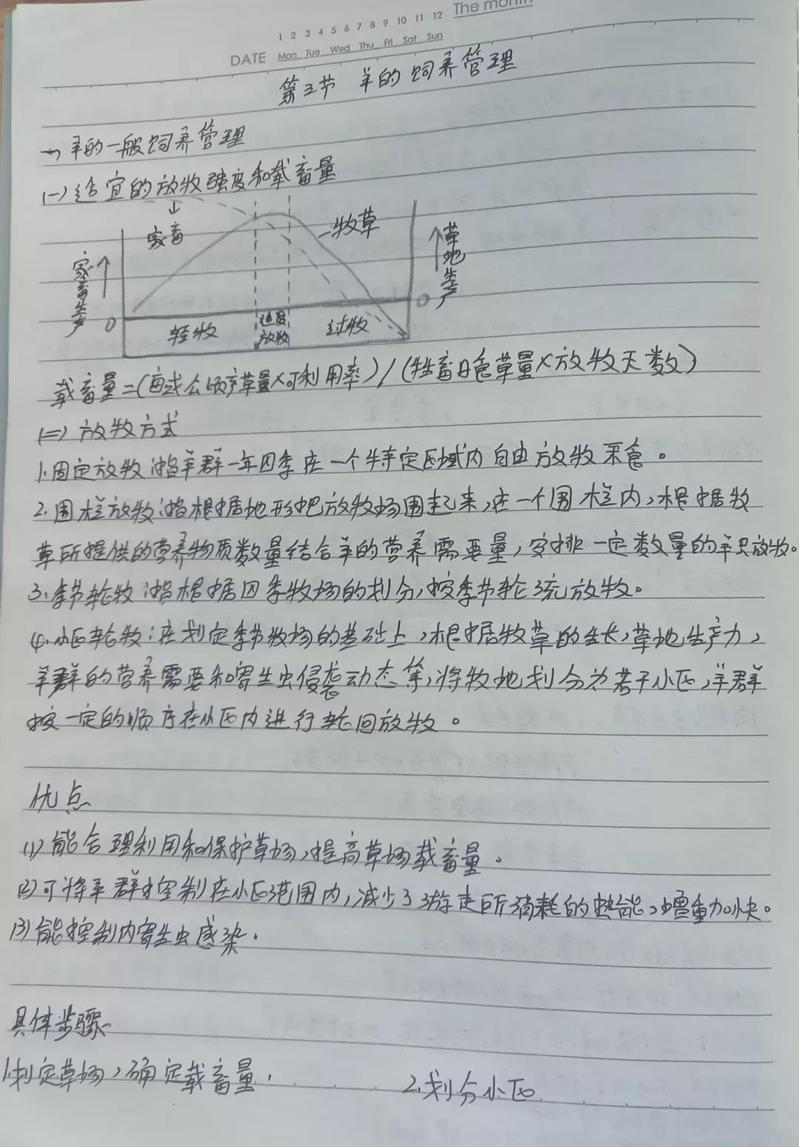 1 2 3 4 5 6 7 8 9 10 11 12 The month
DATE Mon Tue Wed Thu Fri Sat Sun
第三节 羊的饲养管理
一、羊的一般饲养管理
(一)适宜的放牧强度和载畜量
家畜 牧草
家畜生产 草地生产
0 0
轻牧 适度放牧 过牧
载畜量=(每或公顷产草量×可利用率)/(牲畜日食草量×放牧天数)
(二)放牧方式
1.固定放牧:指羊群一年四季在一个特定区域内自由放牧采食。
2.围栏放牧:指根据地形把放牧场围起来,在一个围栏内,根据牧
草所提供的营养物质数量结合羊的营养需要量,安排一定数量的羊只放牧。
3.季节轮牧:指根据四季牧场的划分,按季节轮流放牧。
4.小区轮牧:在划定季节牧场的基础上,根据牧草的生长,草地生产力,
羊群的营养需要和寄生虫侵袭动态等,将牧地划分为若干小区,羊群
按一定的顺序在小区内进行轮回放牧。
优点
(1)能合理利用和保护草场,提高草场载畜量。
(2)可将羊群控制在小区范围内,减少了游走所消耗的热能,增重加快。
(3)能控制内寄生虫感染。
具体步骤
1.划定草场,确定载畜量. 2.划分小区